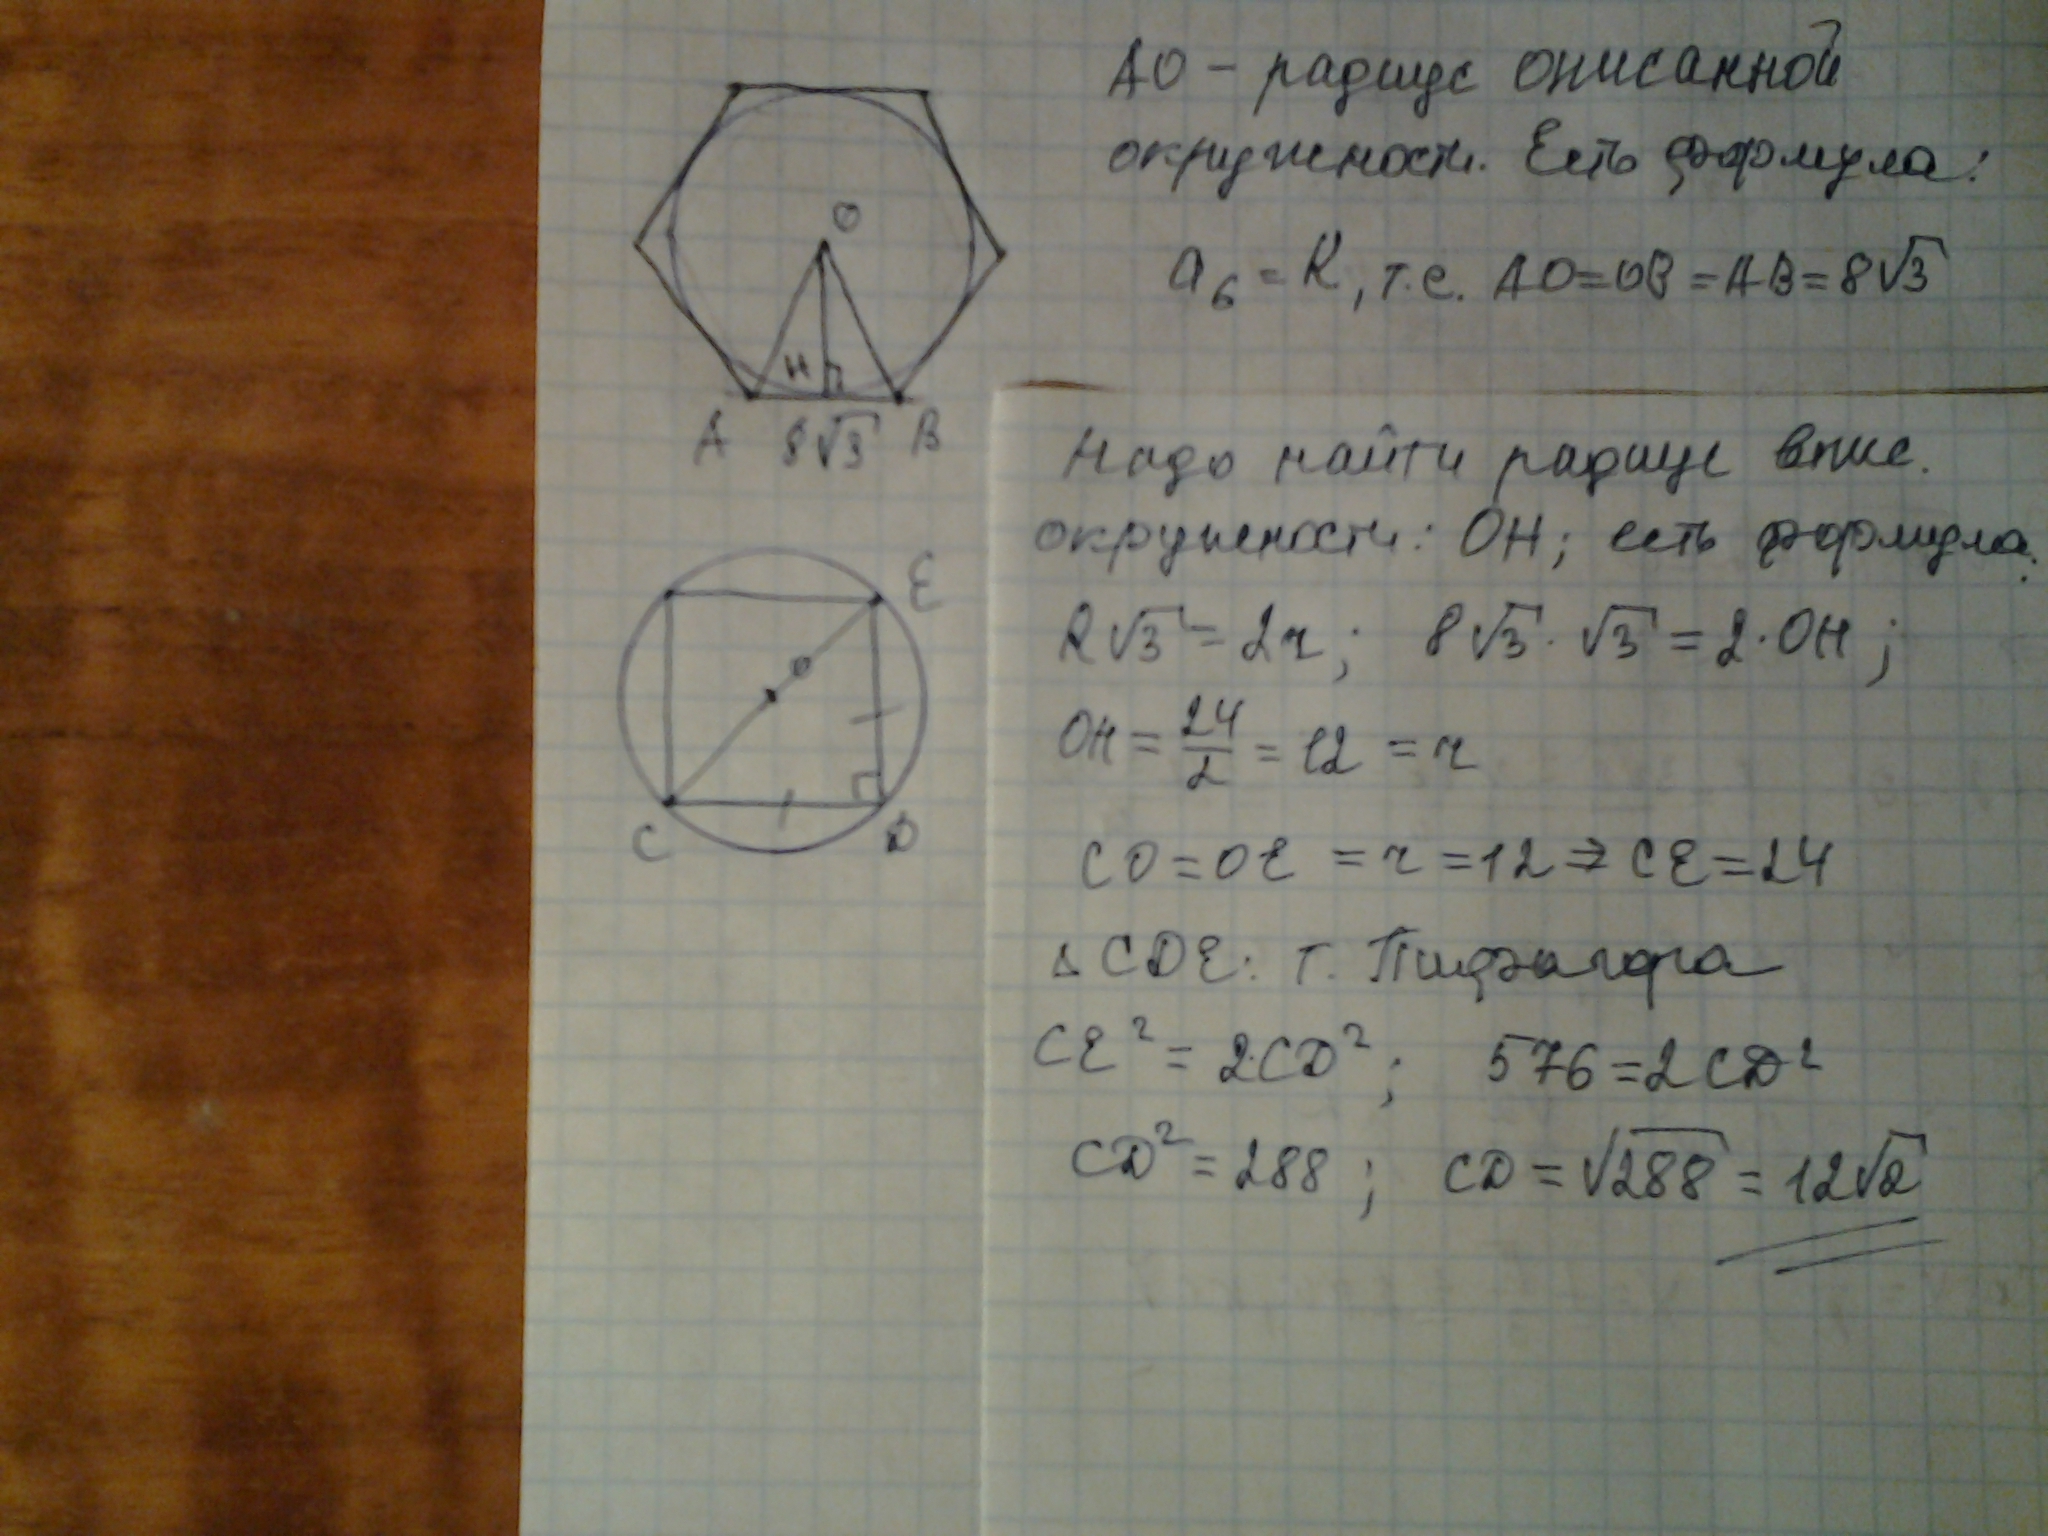 AO – радиус описанной
окружности. Есть формула:
a₆ = R, т.е. AO=OB=AB=8√3
O
H
A 8√3 B
Надо найти радиус впис.
окружности: OH; есть формула:
R√3 = 2r; 8√3 · √3 = 2·OH;
OH = 24/2 = 12 = r
E
O
C D
CO=OE = r =12 ⇒ CE=24
△CDE: т. Пифагора
CE² = 2CD²; 576=2CD²
CD² = 288; CD = √288 = 12√2